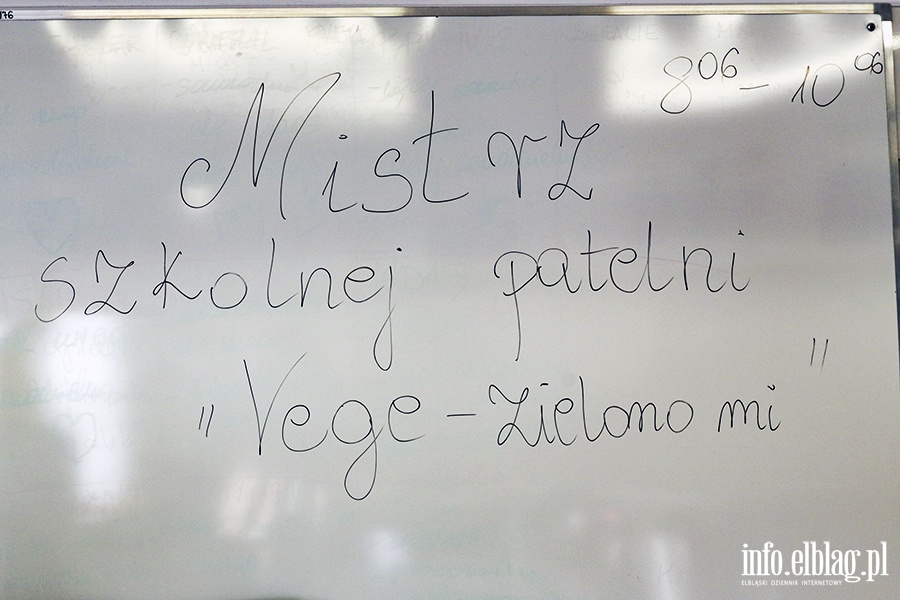 176
8⁰⁶ – 10⁰⁶
Mistrz
szkolnej patelni
"Vege – zielono mi"
info.elblag.pl
ELBLĄSKI DZIENNIK INTERNETOWY